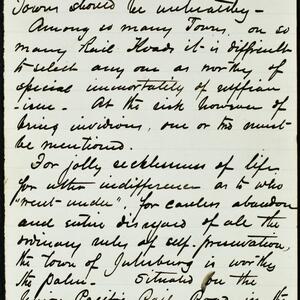 Towns should be
Among so many Towns, on so
many Rail Roads it is difficult
to select any one as worthy of
special immortality of ruffian
-ism - At the risk however of
being invidious, one or two must
be mentioned.
For jolly recklessness of life
for utter indifference as to who
"went under", for careless abandon
and entire disregard of all the
ordinary rules of self-preservation,
the town of Julesburg is worthy
the palm - Situated on the
Union Pacific Rail Road in the